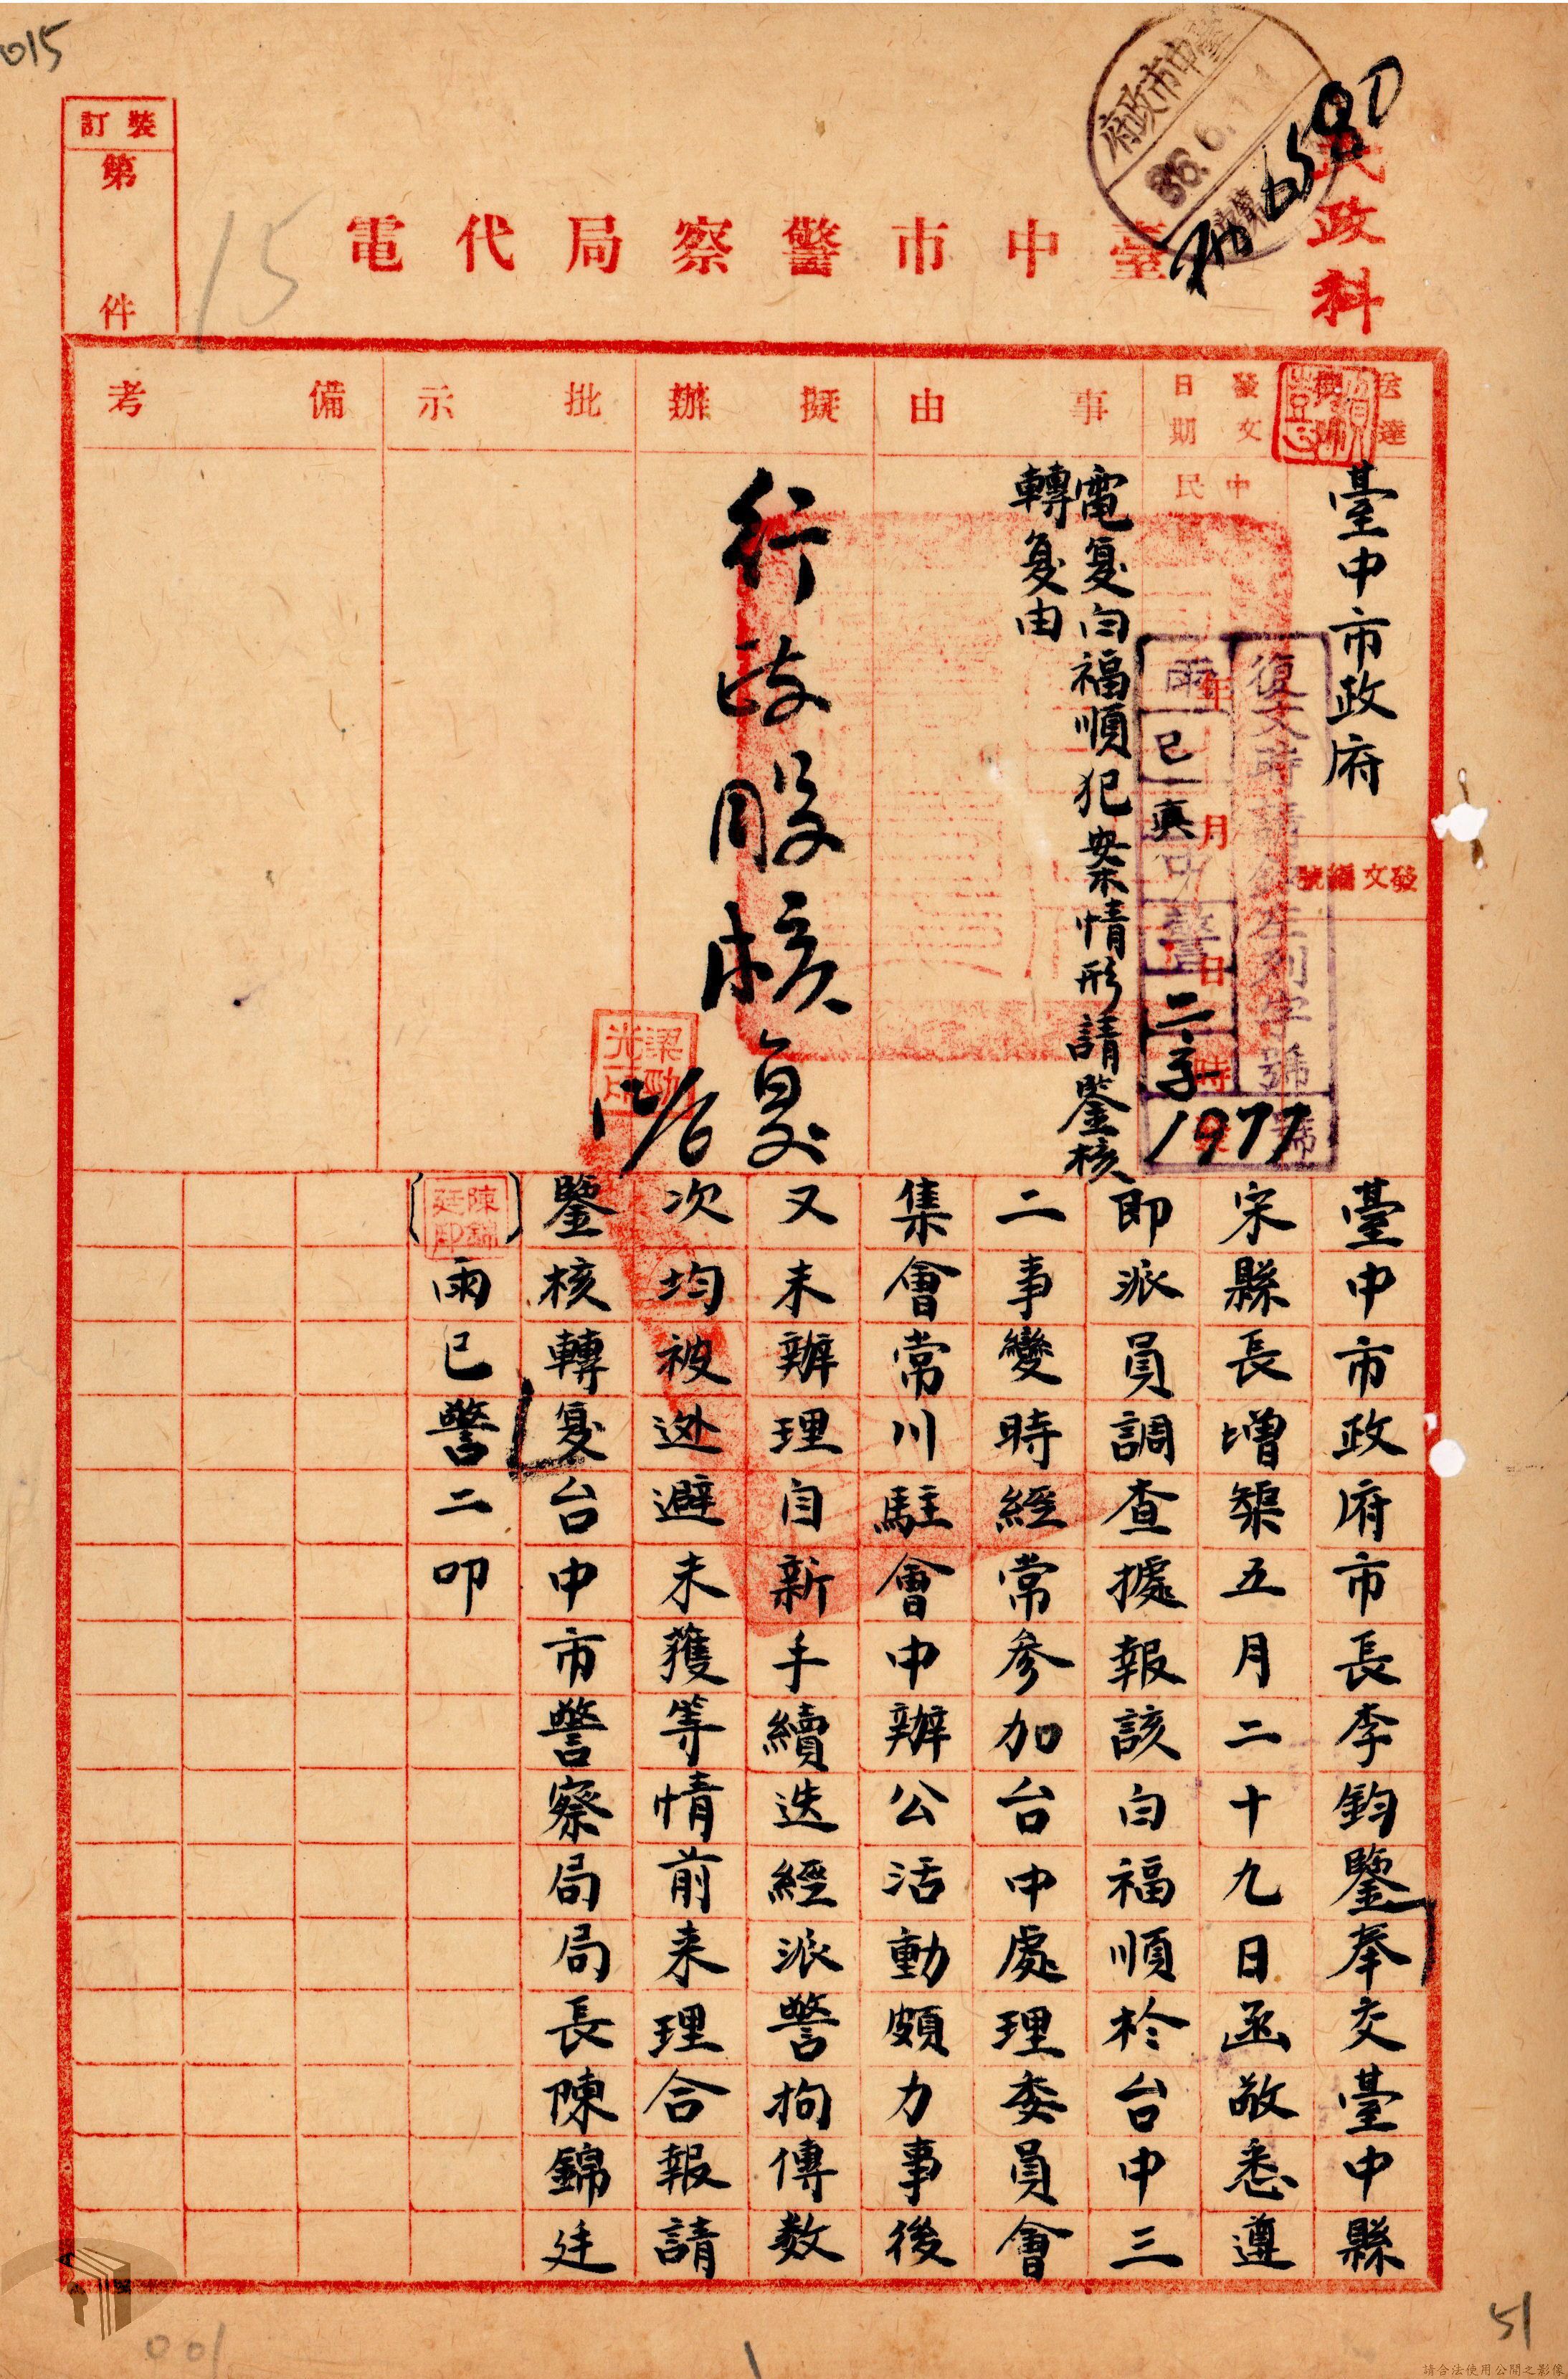 015
裝訂
第
件
15
臺中市警察局代電
臺中市政府
36.6.11
民政科
6590
送達
機關
臺中市政府
發文編號
發文
日期
中
民
年
月
日
時
復文時請敘左列字號
雨
巳
真
警
二字
1977
號
事由
電复白福順犯案情形請鑒核
轉复由
擬辦
行政股核复
12/6
梁勁
光印
批示
備考
臺中市政府市長李鈞鑒奉交臺中縣
宋縣長增榘五月二十九日函敬悉遵
即派員調查據報該白福順於台中三
二事變時經常參加台中處理委員會
集會常川駐會中辦公活動頗力事後
又未辦理自新手續迭經派警拘傳数
次均被逊避未獲等情前来理合報請
鑒核轉复台中市警察局局長陳錦廷
(陳錦廷印)雨巳警二叩
001
51
請合法使用公開之影像